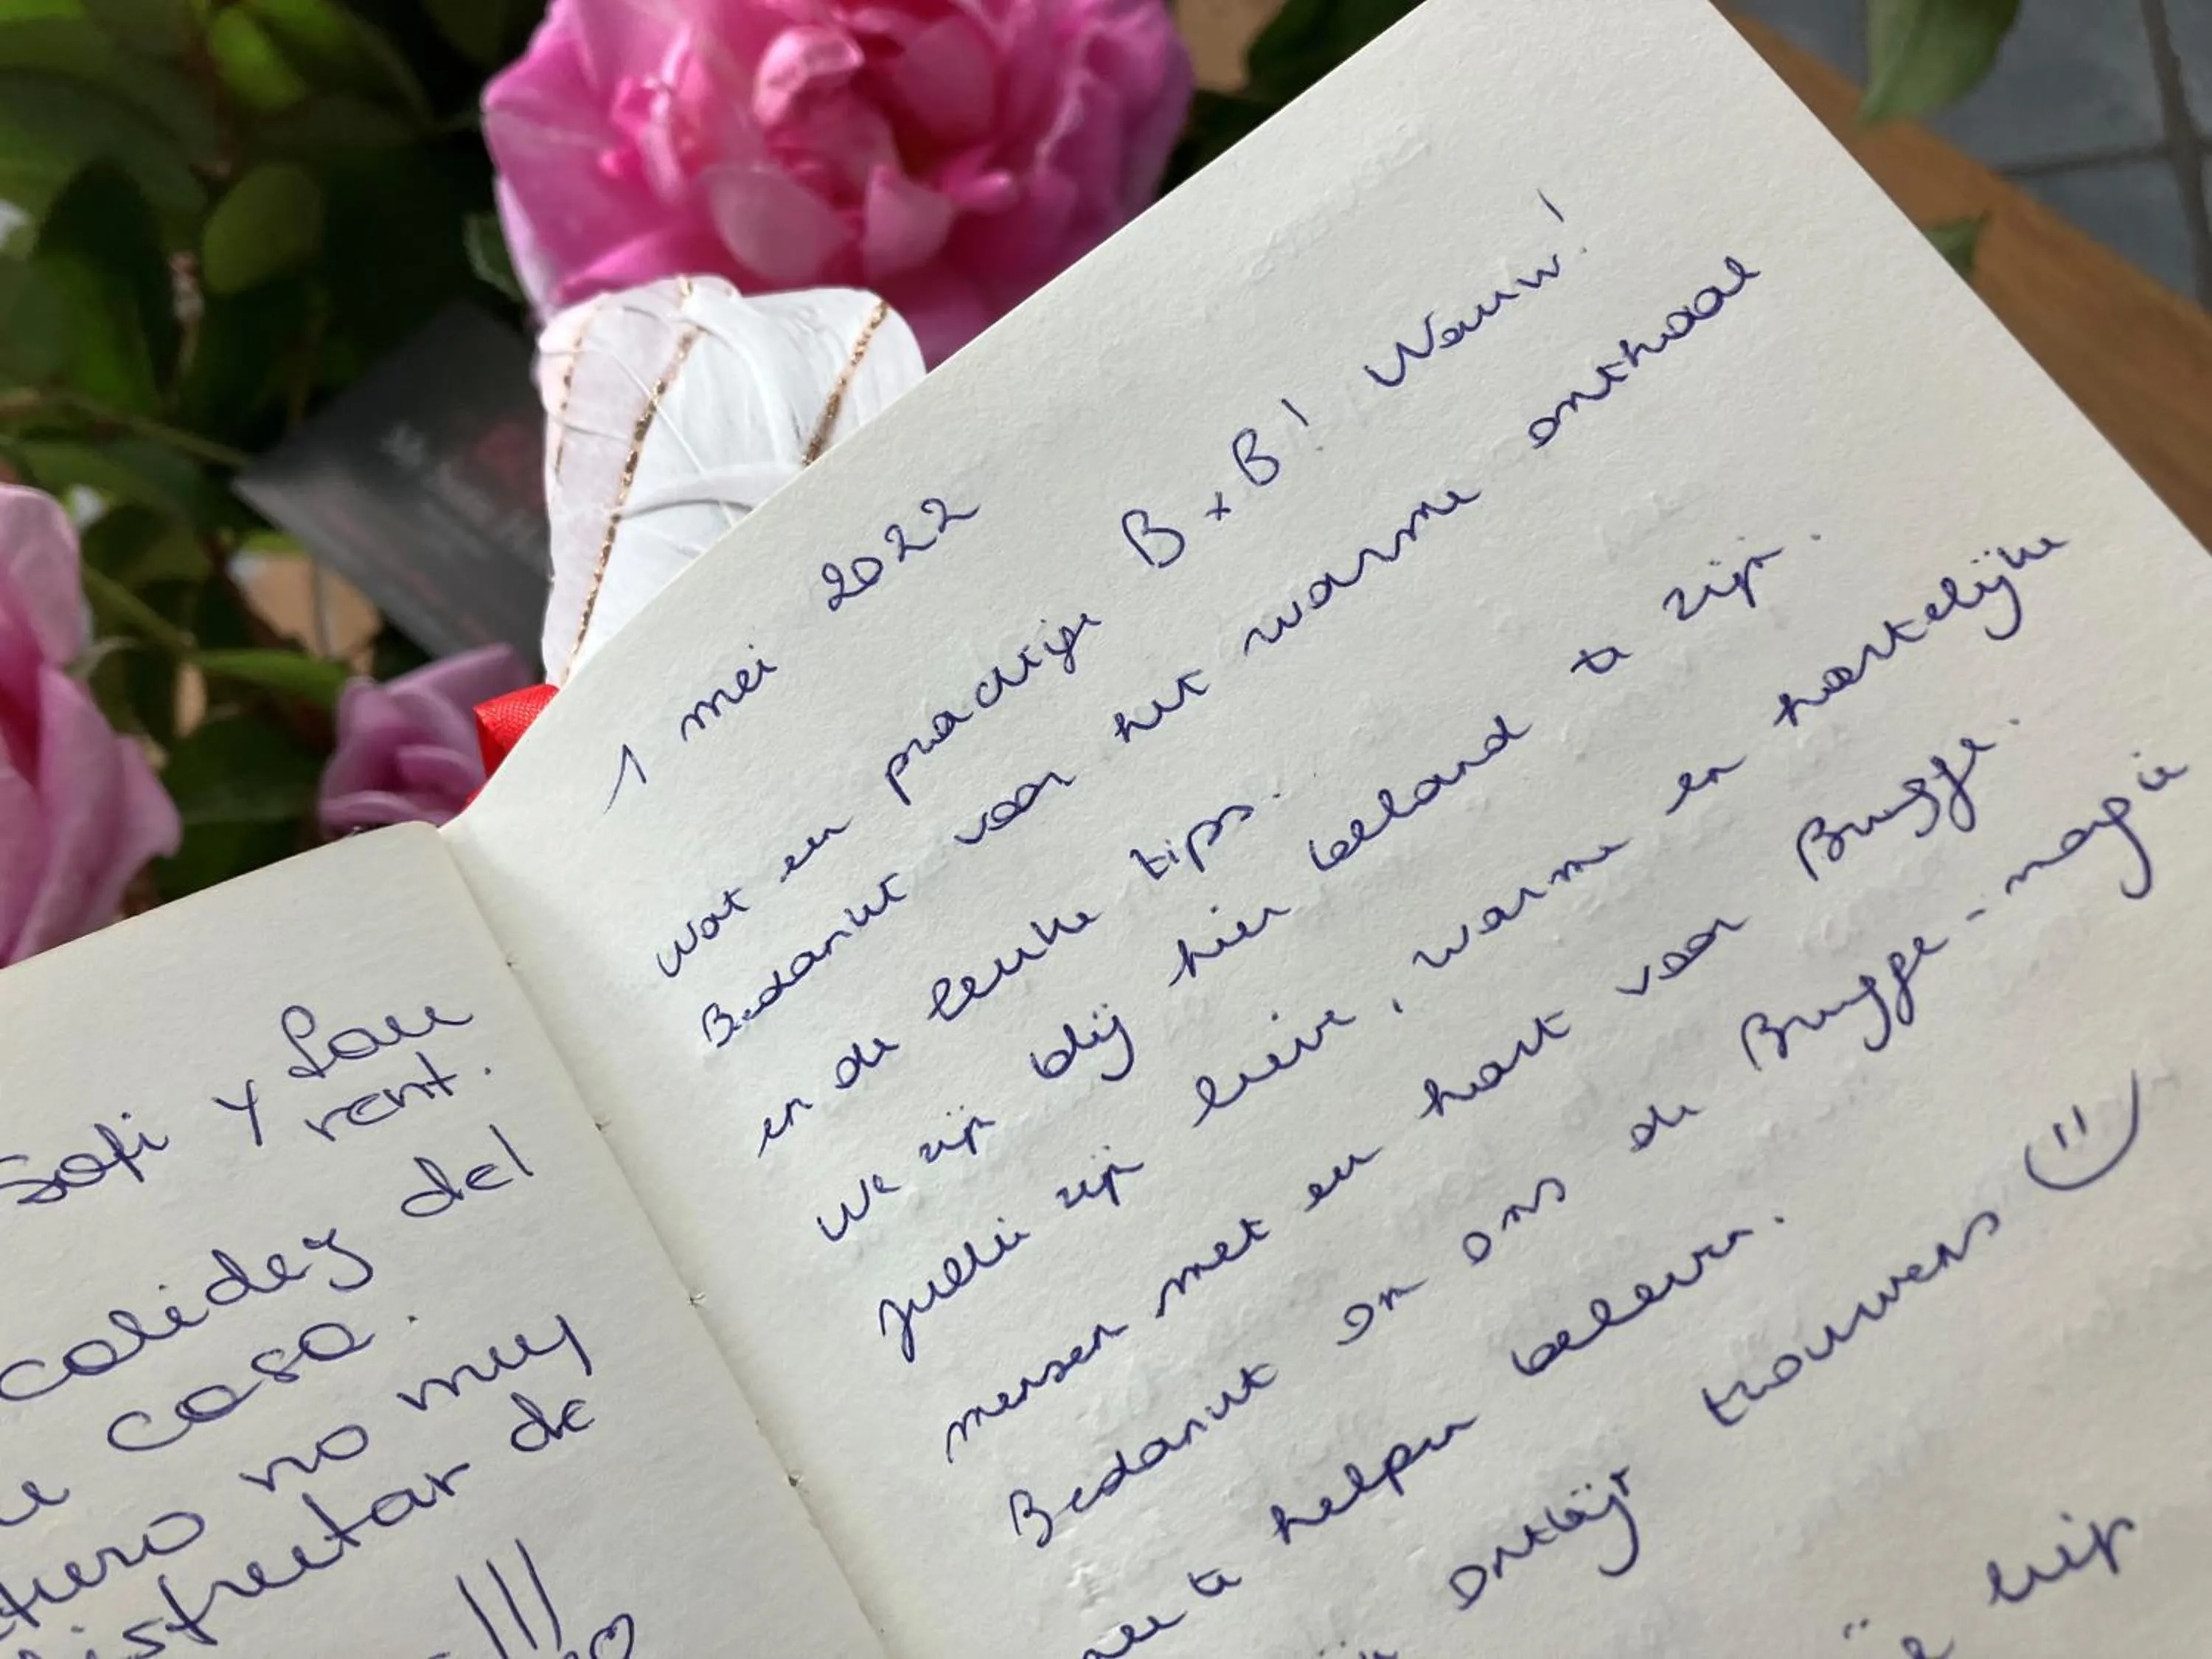 Sofi y Lau
rent.
calidez del
casa.
no muy
disfrutar de
!!!
1 mei 2022
Wat een prachtige B+B! Wauw!
Bedankt voor het warme onthaal
en de leuke tips.
We zijn blij hier beland te zijn.
Jullie zijn lieve, warme en hartelijke
mensen met een hart voor Brugge.
Bedankt om ons de Brugge-magie
mee te helpen beleven.
ontbijt trouwens